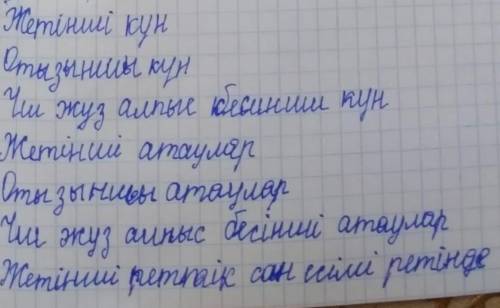 Жетінші күн
Отызыншы күн
Үш жүз алпыс бесинши күн
Жетінші атаулар
Отызыншы атаулар
Үш жүз алпыс бесінші атаулар
Жетінші реттік сан есімі ретінде